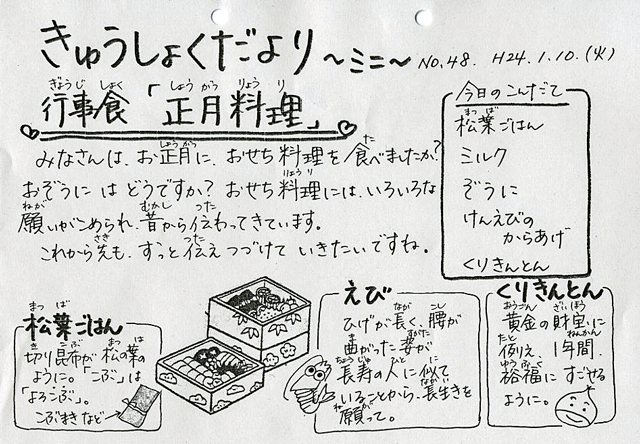 きゅうしょくだより〜ミニ〜 NO.48. H24.1.10.(火)
行事食「正月料理」
ぎょうじしょく しょうがつりょうり
みなさんは、お正月に、おせち料理を食べましたか?
おぞうにはどうですか? おせち料理には、いろいろな
願いがこめられ、昔から伝わってきています。
これから先も、ずっと伝えつづけていきたいですね。
今日のこんだて
松葉ごはん
ミルク
ぞうに
けんえびの
からあげ
くりきんとん
松葉ごはん
切り昆布が松の葉の
ように。「こぶ」は
「よろこぶ」。
こぶまきなど
えび
ひげが長く、腰が
曲がった姿が
長寿の人に似て
いることから、長生きを
願って。
くりきんとん
黄金の財宝に
例え、1年間、
裕福にすごせる
ように。